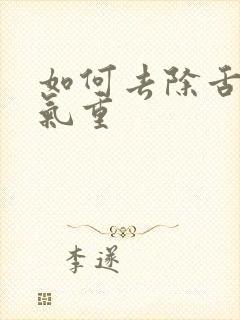 如何去除舌
氣重
李遂